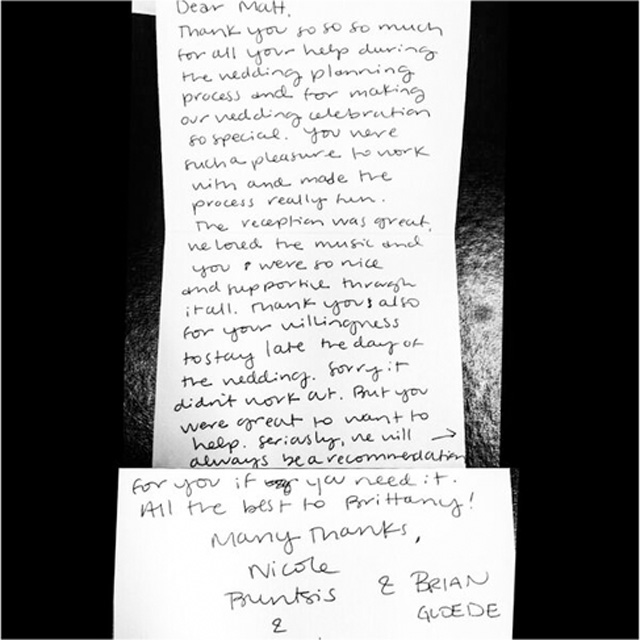 Dear Matt,
Thank you so so so much
for all your help during
the wedding planning
process and for making
our wedding celebration
so special. You were
such a pleasure to work
with and made the
process really fun.
The reception was great,
we loved the music and
you were so nice
and supportive through
it all. Thank you also
for your willingness
to stay late the day of
the wedding. Sorry it
didn't work out. But you
were great to want to
help. Seriously, we will →
always be a recommendation
for you if you need it.
All the best to Brittany!
Many Thanks,
Nicole
Buntsis
& BRIAN
GUDEDE
&